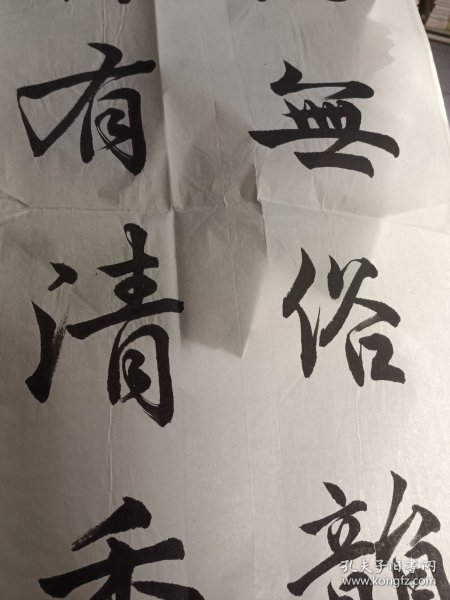 無俗韻
有清香
孔夫子旧书网
www.kongfz.com